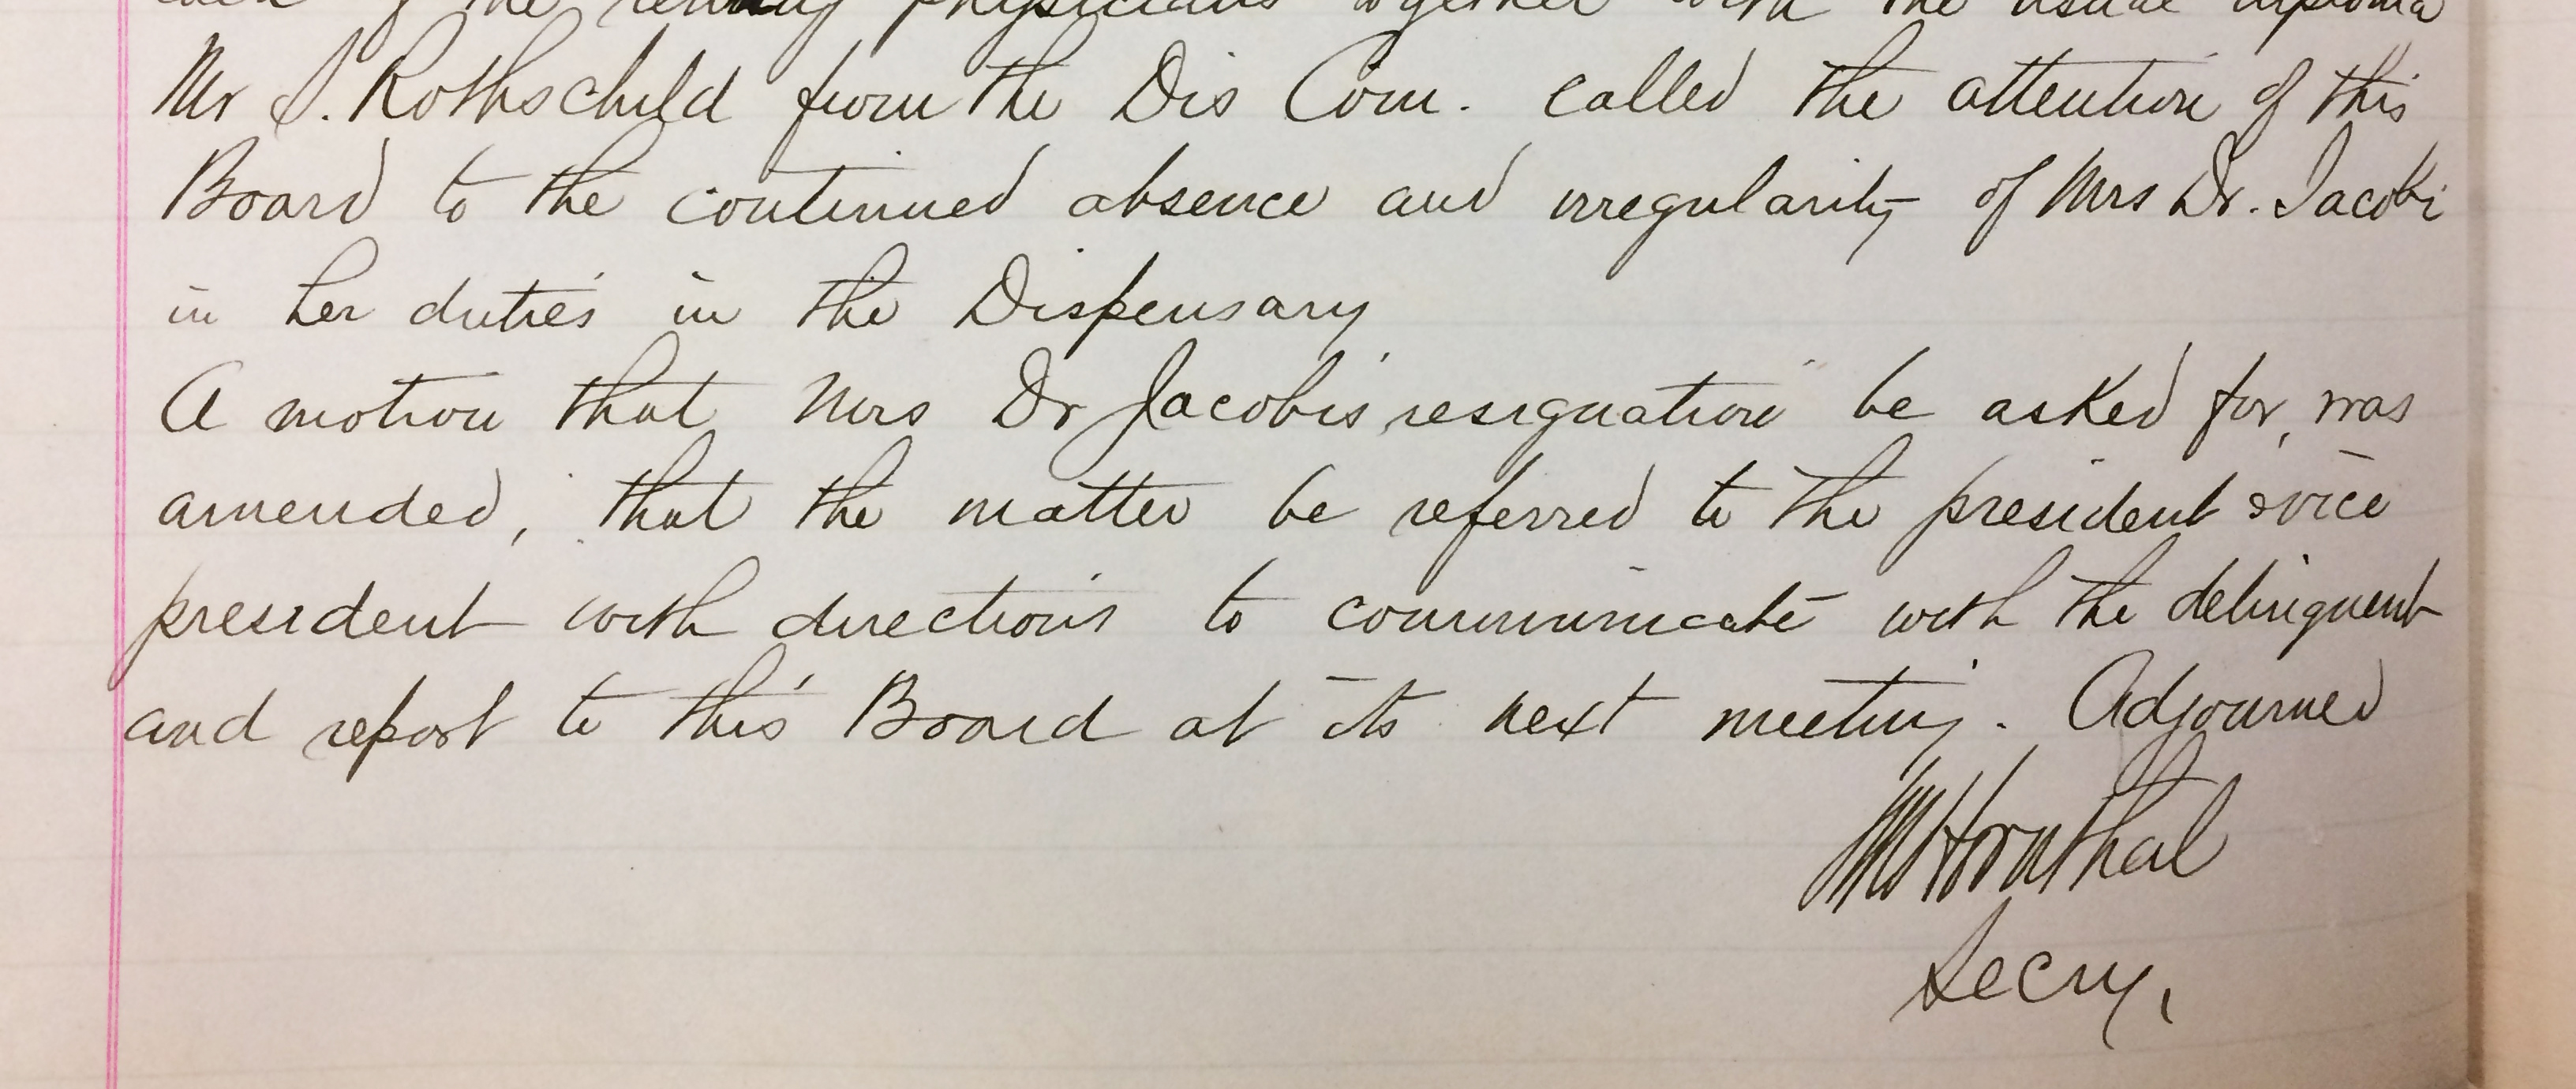 of the retiring physicians together with the usual diploma
Mr S. Rothschild from the Dis Com. called the attention of this
Board to the continued absence and irregularity of Mrs Dr. Jacobi
in her duties in the Dispensary
A motion that Mrs Dr Jacobis resignation be asked for, was
amended, that the matter be referred to the president & vice
president with directions to communicate with the delinquent
and report to this Board at its next meeting. Adjourned
Hornthal
Secry,